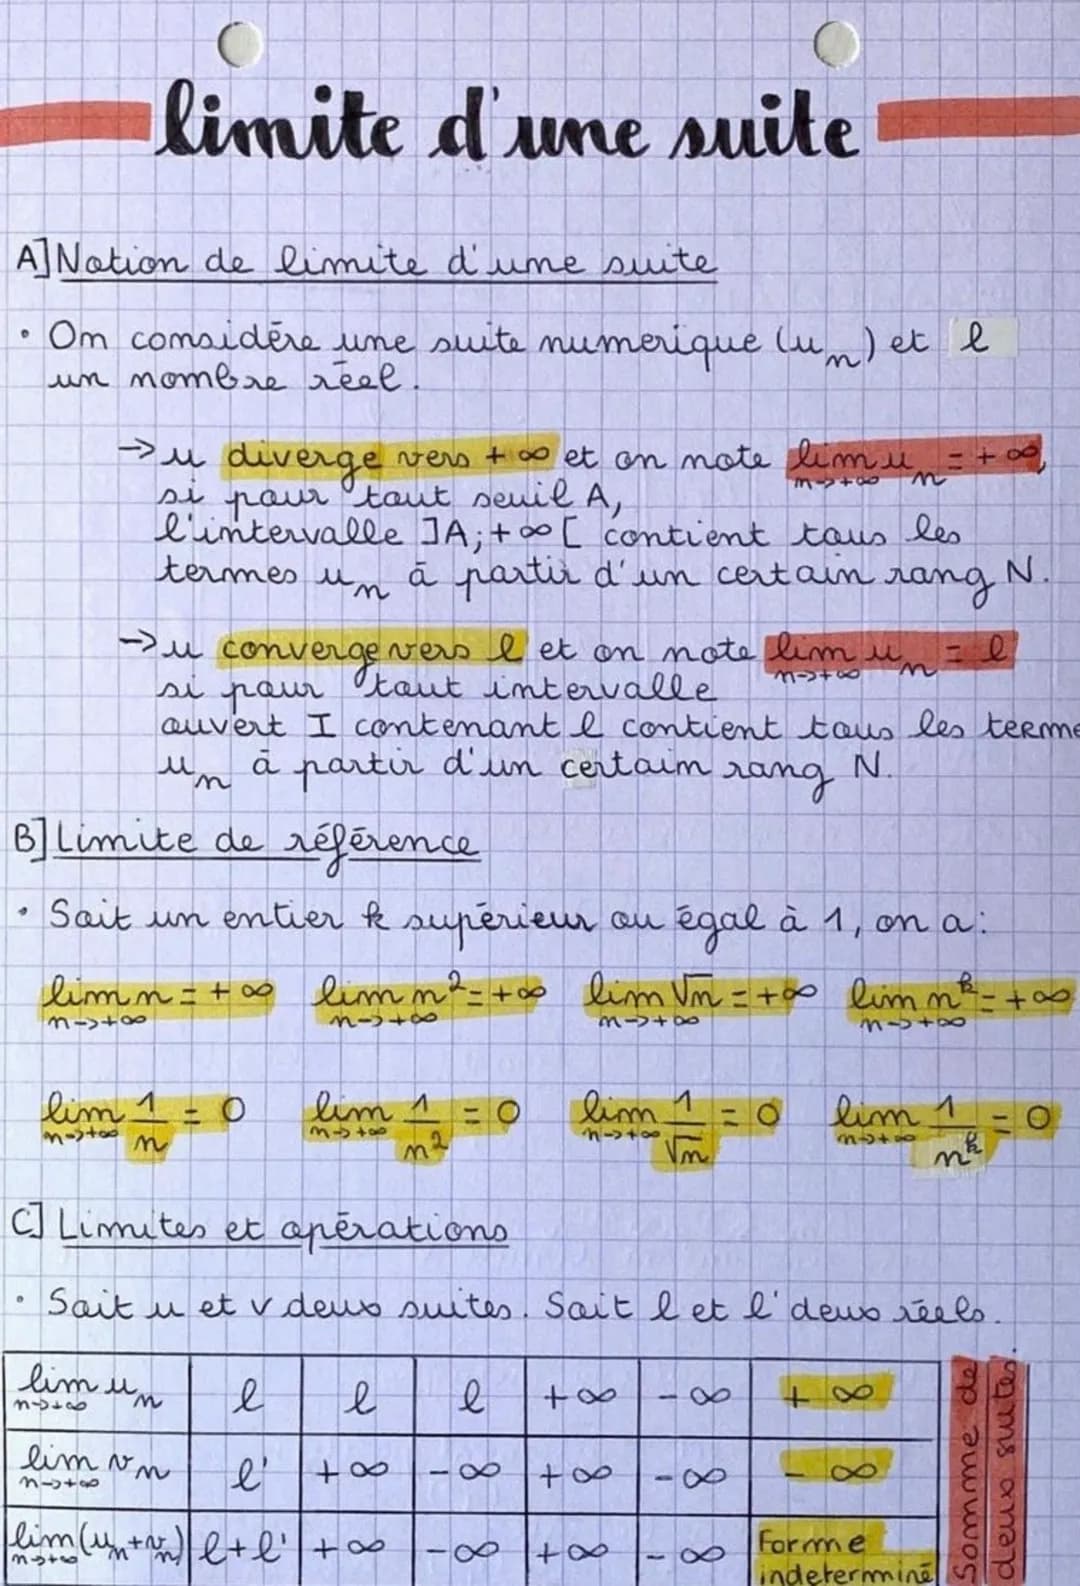 limite d'une suite
A] Notion de limite d'une suite
• On considère une suite numerique (uₙ) et l
un nombre réel.
→ u diverge vers +∞ et on note lim uₙ = +∞,
n→+∞
si pour tout seuil A,
l'intervalle ]A;+∞[ contient tous les
termes uₙ à partir d'un certain rang N.
→ u converge vers l et on note lim uₙ = l
n→+∞
si pour tout intervalle
ouvert I contenant l contient tous les terme
uₙ à partir d'un certain rang N.
B] Limite de référence
• Soit un entier k supérieur ou égal à 1, on a:
lim n = +∞ lim n² = +∞ lim √n = +∞ lim nᵏ = +∞
n→+∞ n→+∞ n→+∞ n→+∞
lim 1/n = 0 lim 1/n² = 0 lim 1/√n = 0 lim 1/nᵏ = 0
n→+∞ n→+∞ n→+∞ n→+∞
C] Limites et opérations
• Soit u et v deux suites. Soit l et l' deux réels.
lim uₙ l l l +∞ -∞ +∞
n→+∞
lim vₙ l' +∞ -∞ +∞ -∞ -∞
n→+∞
lim (uₙ+vₙ) l+l' +∞ -∞ +∞ -∞ Forme
n→+∞ indeterminé
Somme de
deux suites.